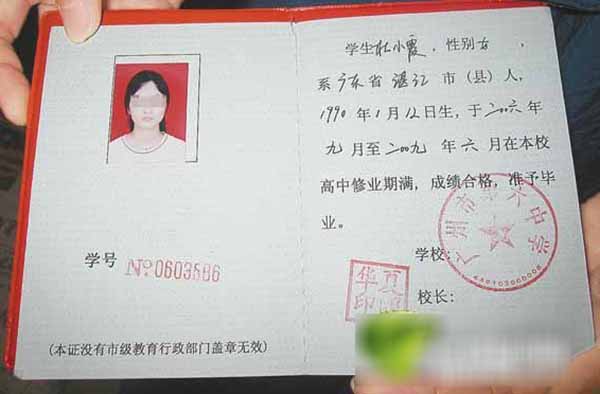 学号 №0603586
(本证没有市级教育行政部门盖章无效)
学生杜小霞,性别女,
系广东省湛江市(县)人,
1990年1月12日生,于二〇〇六年
九月至二〇〇九年六月在本校
高中修业期满,成绩合格,准予毕
业。
学校:
广州市第六中学
校长:
华夏印